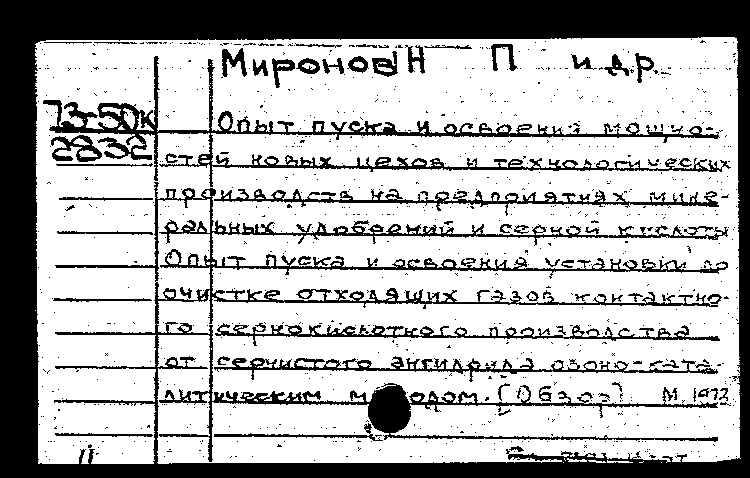 Миронов Н П и др.
73-50к
2832
Опыт пуска и освоения мощно-
стей новых цехов и технологических
производств на предприятиях мине-
ральных удобрений и серной кислоты
Опыт пуска и освоения установки по
очистке отходящих газов контактно-
го сернокислотного производства
от сернистого ангидрида озоно-ката-
литическим м одом. [Обзор] М. 1972
11